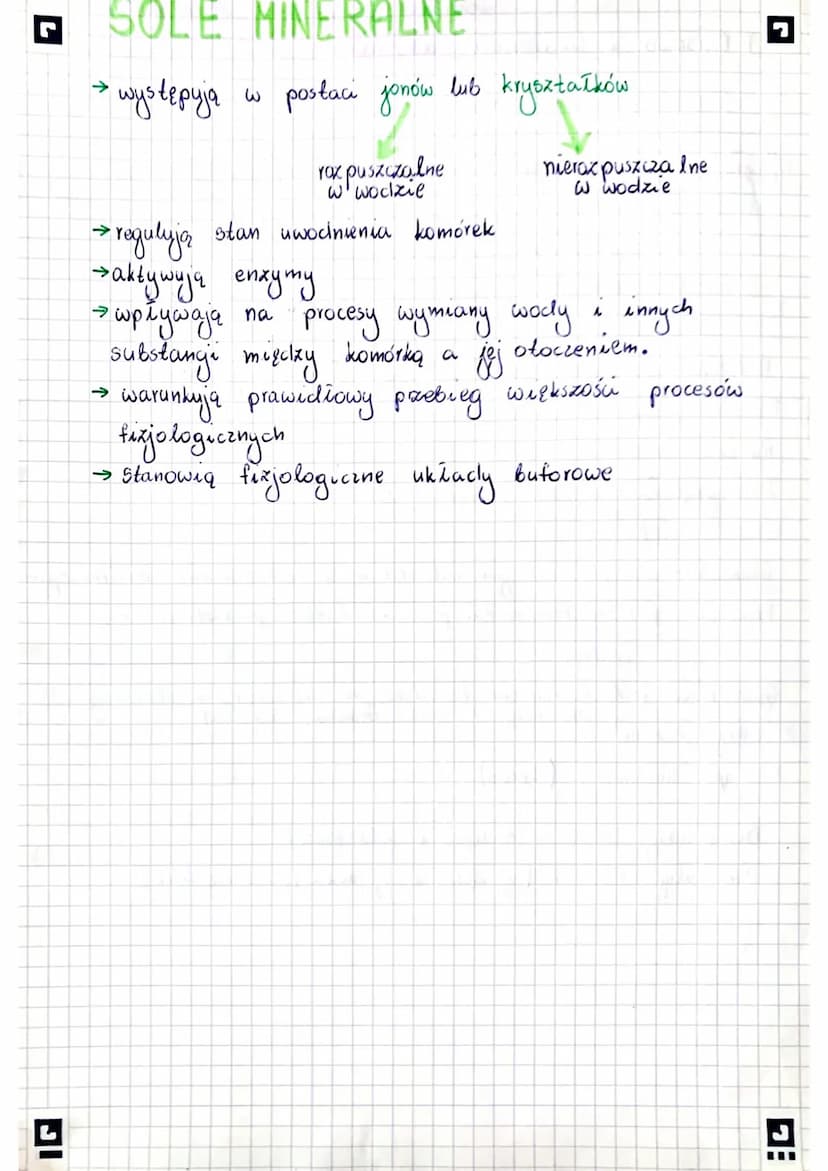 SOLE MINERALNE
→ występują w postaci jonów lub kryształków
rozpuszczalne w wodzie
nierozpuszczalne w wodzie
→ regulują stan uwodnienia komórek
→ aktywują enzymy
→ wpływają na procesy wymiany wody i innych
substancji między komórką a jej otoczeniem.
→ warunkują prawidłowy przebieg większości procesów
fizjologicznych
→ Stanowią fizjologiczne układy buforowe